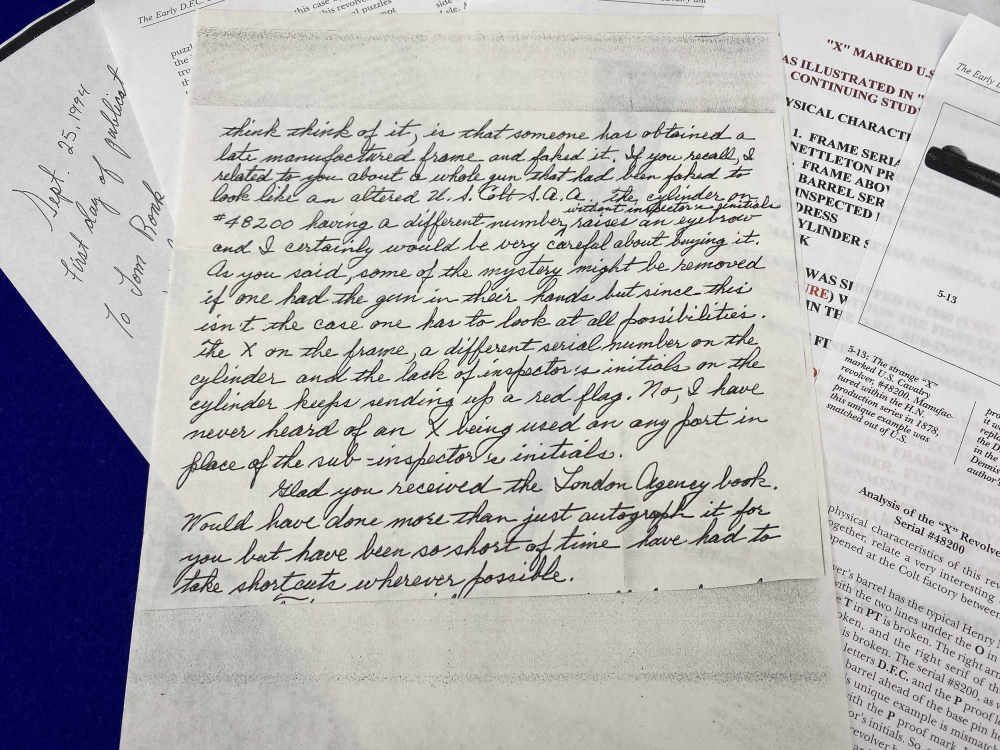 think think of it, is that someone has obtained a
late manufactured frame and faked it. If you recall, I
related to you about a whole gun that had been faked to
look like an altered U.S. Colt S.A.A. The cylinder on
without inspector's initials
#48200 having a different number, raises an eyebrow
and I certainly would be very careful about buying it.
As you said, some of the mystery might be removed
if one had the gun in their hands but since this
isn't the case one has to look at all possibilities.
The X on the frame, a different serial number on the
cylinder and the lack of inspector's initials on the
cylinder keeps sending up a red flag. No, I have
never heard of an X being used on any part in
place of the sub-inspector's initials.
Glad you received the London Agency book.
Would have done more than just autograph it for
you but have been so short of time have had to
take shortcuts wherever possible.
Sept. 25, 1994
First day of publicat
To Tom
The Early D.F.C.
this case
this revolver
puzzles
puzzl
the
"X" MARKED U.S
AS ILLUSTRATED IN "
CONTINUING STUD
YSICAL CHARACT
1. FRAME SERIA
NETTLETON PR
FRAME ABOV
BARREL SER
INSPECTED
DRESS
YLINDER S
K
WAS SI
URE) W
IN TH
FI
The Early
5-13
5-13: The strange "X"
marked U.S. Cavalry
revolver, #48200. Manufac-
tured within the H.N.
production series in 1878,
this unique example was
snatched out of U.S.
pro
it w
repl
the D
in the
Dennis
author's
Analysis of the "X" Revolve
Serial #48200
physical characteristics of this rev
ogether, relate a very interesting
pened at the Colt factory between
ver's barrel has the typical Henry
with the two lines under the O in
T in PT is broken. The right arm
ken, and the right serif of the
is broken. The serial #8200, as w
letters D.F.C. and the P proof
barrel ahead of the base pin
s unique example is mismat
ith the P proof mark
or's initials. So
evolver